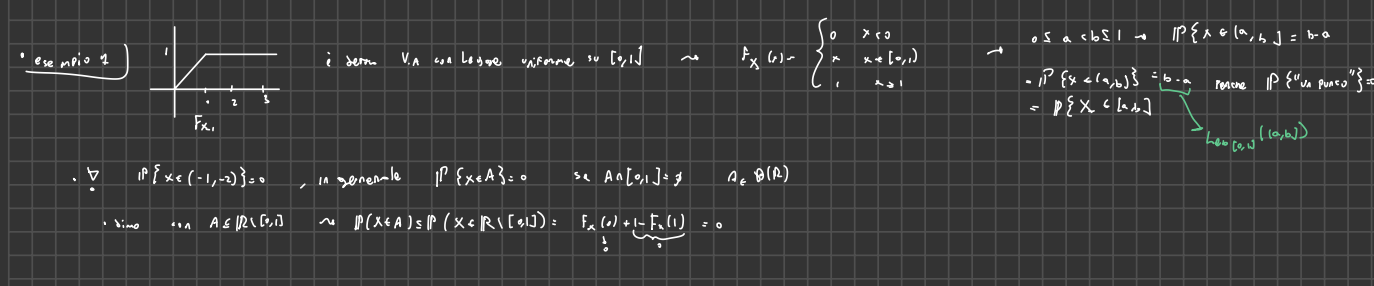 • esempio 1) 1 1 2 3 F_{X_1} è detta V.A con Legge uniforme su [0,1] ⤳ F_X(x) = { 0 x<0
x x∈[0,1)
1 x≥1
→ 0≤a<b≤1 → ℙ{X∈(a,b]} = b-a
• ℙ{X∈(a,b)} = b-a perché ℙ{"un punto"}=0
= ℙ{X∈[a,b]
Leb_{[0,1]}((a,b])
• ∇! ℙ{X∈(-1,-2)}=0 , in generale ℙ{X∈A}=0 se A∩[0,1]=∅ A∈B(ℝ)
• dimo con A⊆ℝ\[0,1] ⤳ ℙ(X∈A)≤ℙ(X∈ℝ\[0,1]) = F_X(0)+1-F_X(1) = 0
0 0